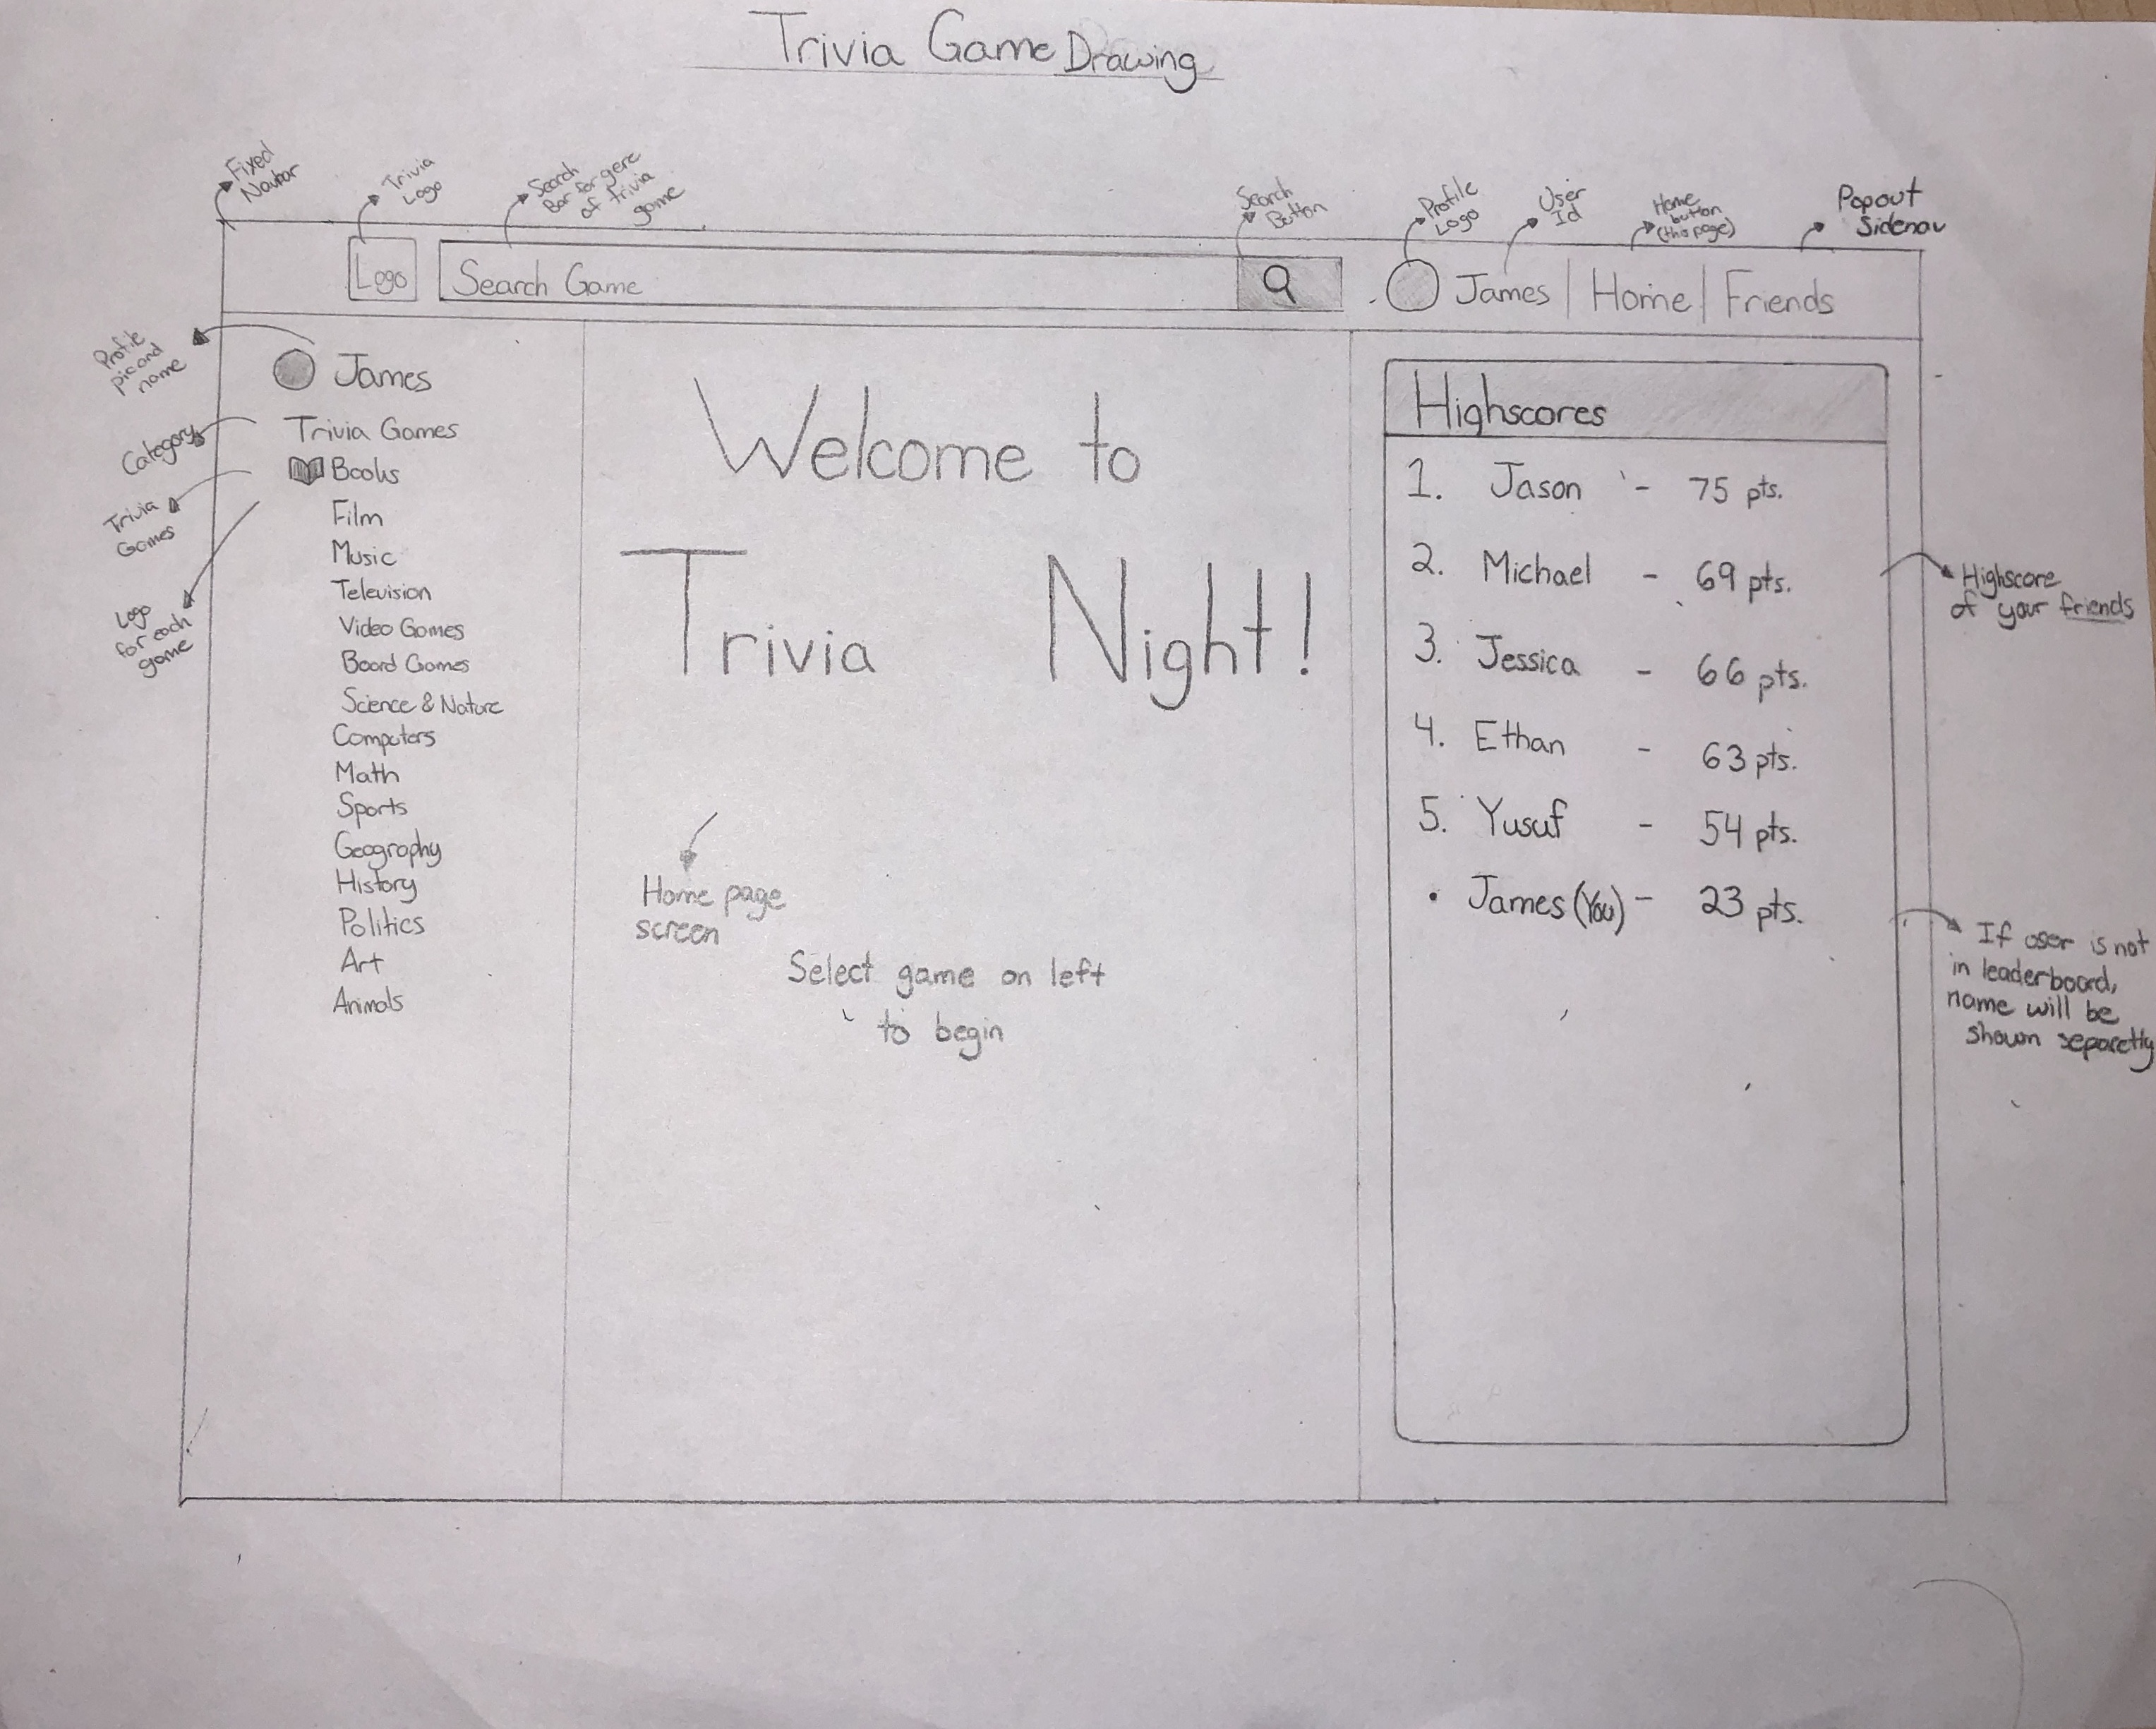 Trivia Game Drawing
Fixed
Navbar
Trivia
Logo
Search
Bar for gere
of trivia
game
Search
Button
Profile
Logo
User
Id
Home
button
(this page)
Popout
Sidenav
Logo
Search Game
James | Home | Friends
Profile
pic and
name
James
Category
Trivia Games
Books
Trivia
Games
Film
Music
Television
Logo
for each
game
Video Games
Board Games
Science & Nature
Computers
Math
Sports
Geography
History
Politics
Art
Animals
Welcome to
Trivia Night!
Home page
screen
Select game on left
to begin
Highscores
1. Jason - 75 pts.
2. Michael - 69 pts.
3. Jessica - 66 pts.
4. Ethan - 63 pts.
5. Yusuf - 54 pts.
• James (You) - 23 pts.
Highscore
of your friends
If user is not
in leaderboard,
name will be
shown separetly